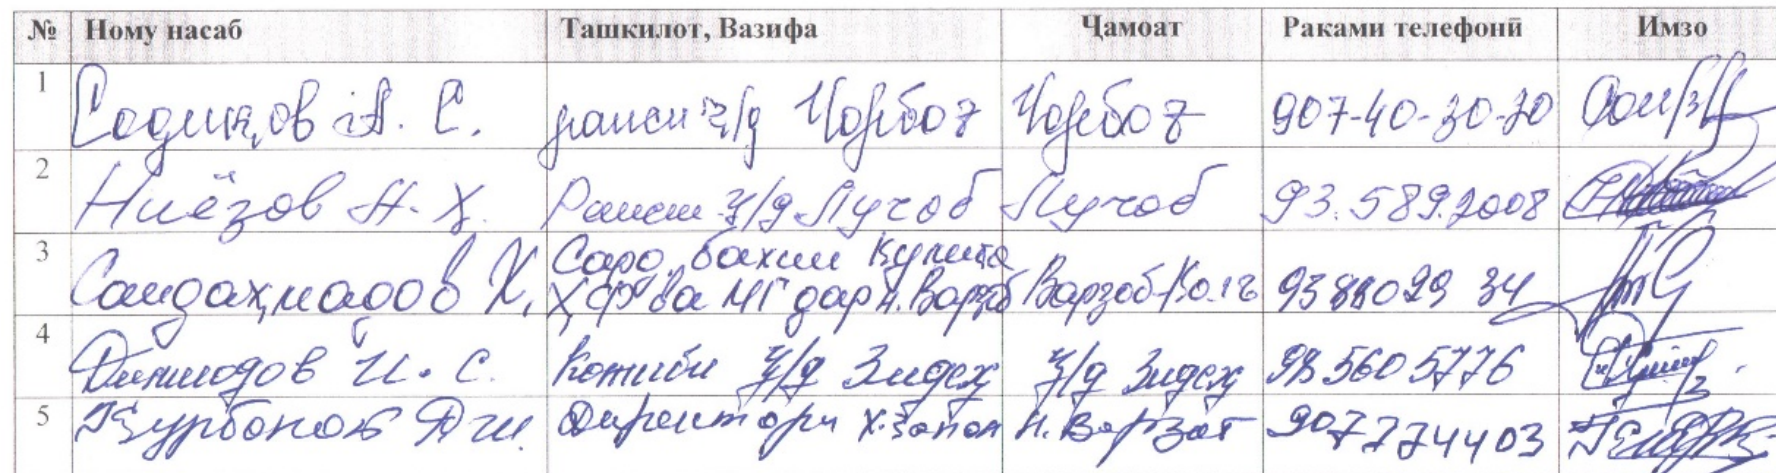 № Ному насаб Ташкилот, Вазифа Ҷамоат Раками телефонӣ Имзо
1 Содиқов А. С. раиси ҷ/д Чорбоғ Чорбоғ 907-40-30-30
2 Ниёзов Н. Ҳ. Раиси ҷ/д Лучоб Лучоб 93.589.2008
3 Саидаҳмадов Х. Саро бахши Кумита
ҲФ ва МГ дар н. Варзоб Варзоб-Қалъа 93 880 29 34
4 Дилшодов И. С. Котиби ҷ/д Зидеҳ ҷ/д Зидеҳ 98 560 5776
5 Қурбонов Директори н. Варзоб 907774403